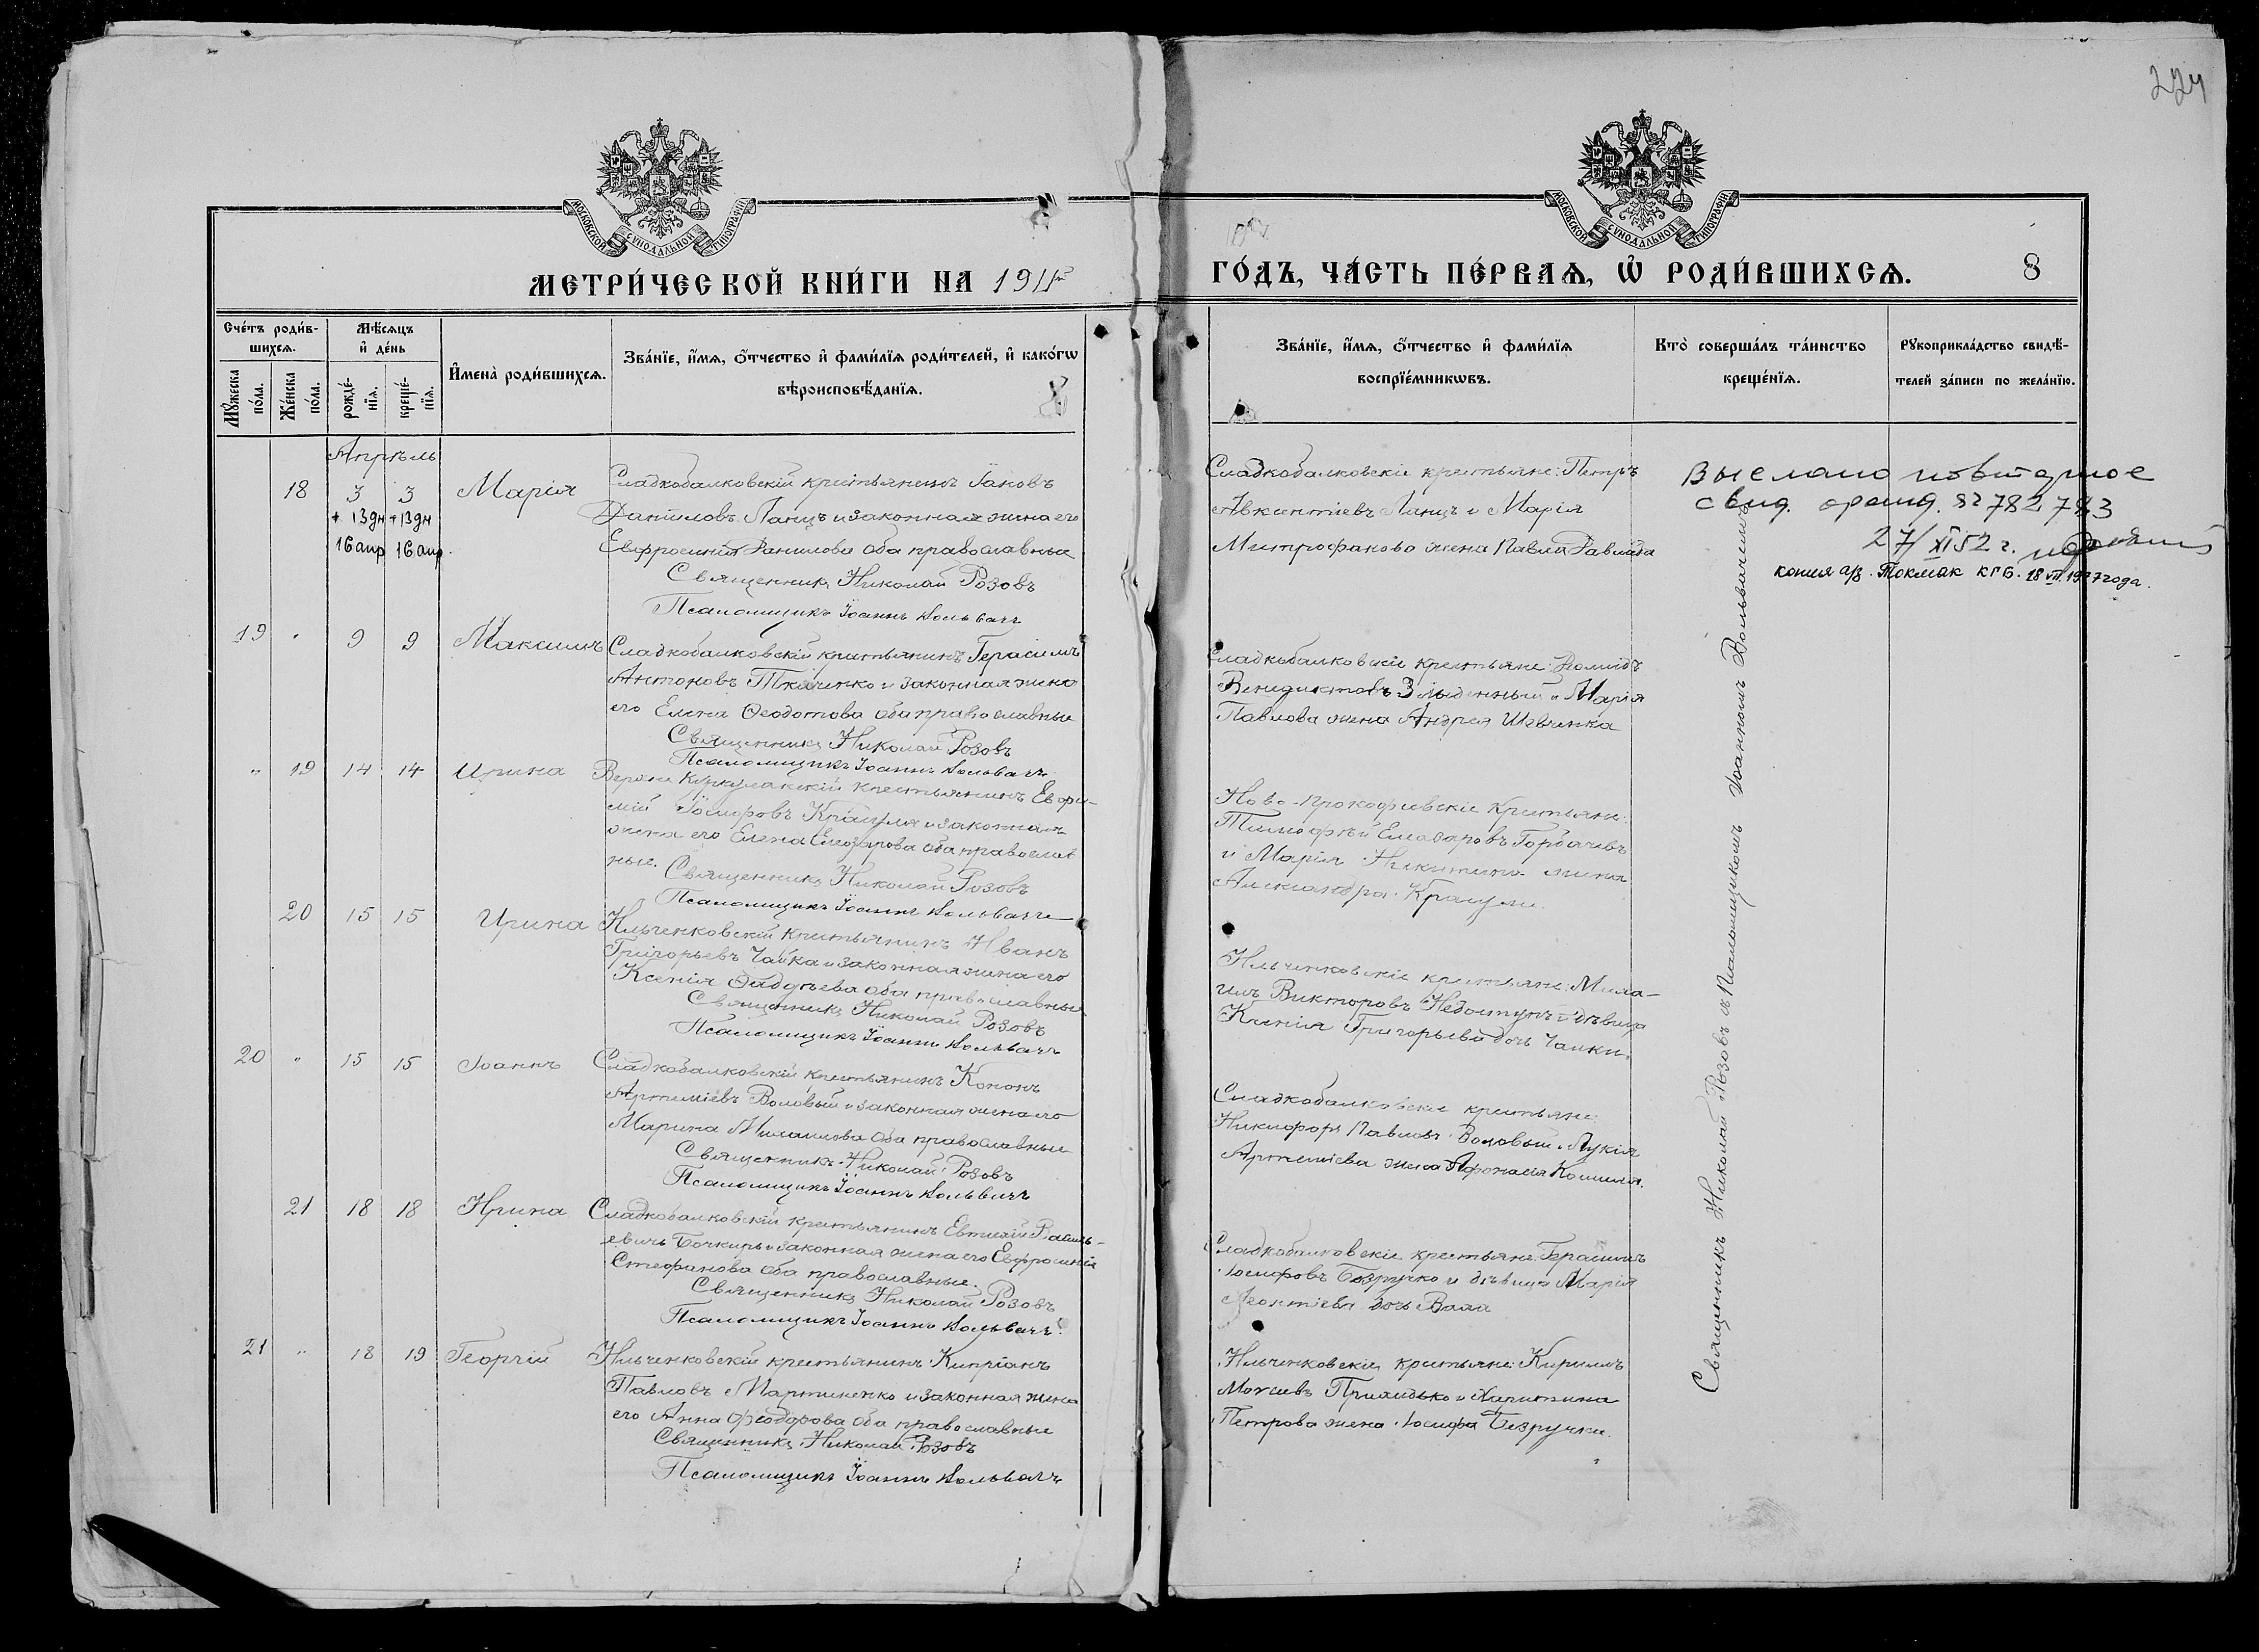 224
МОСКОВСКОЙ СѴНОДАЛЬНОЙ ТИПОГРАФІИ
МОСКОВСКОЙ СѴНОДАЛЬНОЙ ТИПОГРАФІИ
МЕТРИ́ЧЕСКОЙ КНИ́ГИ НА 1911
ГО́ДЪ, ЧА́СТЬ ПЕ́РВАѦ, Ѡ҆ РОДИ́ВШИХСѦ.
8
Сче́тъ роди́в-
шихсѧ.
Мꙋ́жеска
по́ла.
Же́нска
по́ла.
Мѣ́сѧцъ
и҆ де́нь
рожде́-
нїѧ.
креще́-
нїѧ.
И҆мена̀ роди́вшихсѧ.
Зва́нїе, и҆́мѧ, ѻ҆́тчество и҆ фами́лїѧ роди́телей, и҆ како́гѡ
вѣроисповѣ́данїѧ.
Зва́нїе, и҆́мѧ, ѻ҆́тчество и҆ фами́лїѧ
воспрїе́мникѡвъ.
Кто̀ соверша́лъ та́инство
креще́нїѧ.
Рꙋкоприкла́дство свидѣ́-
телей за́писи по жела́нїю.
Апрѣль
18 3 3 Марія
+ 13дн + 13дн
16 апр 16 апр.
Сладкобалковскій крестьянинъ Іаковъ
Даниловъ Ланцъ и законная жена его
Евфросинія Данилова оба православные
Священникъ Николай Розовъ
Псаломщикъ Іоаннъ
Сладкобалковскіе крестьяне: Петръ
Авксентіевъ Ланцъ и Марія
Митрофанова жена Павла
Выслано повторное
свид.
782783
27/XI 52 г.
копия а/з. Токмак КГБ. 18 VII 1977 года.
19 " 9 9 Максимъ
Сладкобалковскій крестьянинъ Герасимъ
Антоновъ Ткаченко и законная жена
его Елена Ѳеодотова оба православные
Священникъ Николай Розовъ
Псаломщикъ Іоаннъ
Сладкобалковскіе крестьяне:
Венедиктовъ и Марія
Павлова жена Андрея Шевченка
" 19 14 14 Ирина
Верхне Куркулакскій крестьянинъ Евфи-
мій Іосифовъ и законная
жена его Елена Елеазарова оба православ
ные.
Священникъ Николай Розовъ
Псаломщикъ Іоаннъ
Ново-Прокофіевскіе крестьяне:
Тимофѣй Елеазаровъ Горбачевъ
и Марія Никитина жена
Александра
20 15 15 Ирина
Ильченковскій крестьянинъ Иванъ
Григорьевъ Чайка и законная жена его
Ксенія Фадѣева оба православные
Священникъ Николай Розовъ
Псаломщикъ Іоаннъ
Ильченковскіе крестьяне:
Викторовъ и дѣвица
Ксенія Григорьева дочь Чайки.
20 " 15 15 Іоаннъ
Сладкобалковскій крестьянинъ Кононъ
Артеміевъ Воловый и законная жена его
Марина Михайлова оба православные
Священникъ Николай Розовъ
Псаломщикъ Іоаннъ
Сладкобалковскіе крестьяне:
Никифоръ Павловъ Воловый и Лукія
Артеміева жена Афонасія
21 18 18 Ирина
Сладкобалковскій крестьянинъ Евтихій Василь-
евичъ Бочкирь и законная жена его Евфросинія
Стефанова оба православные.
Священникъ Николай Розовъ
Псаломщикъ Іоаннъ
Сладкобалковскіе крестьяне: Герасимъ
Іосифовъ Безручко и дѣвица Марія
Леонтіева дочь
21 " 18 19 Георгій
Ильченковскій крестьянинъ Кипріанъ
Павловъ Мартиненко и законная жена
его Анна Ѳеодорова оба православные
Священникъ Николай Розовъ
Псаломщикъ Іоаннъ
Ильченковскіе крестьяне: Кириллъ
и Харитина
Петрова жена Іосифа Безручки.
Священникъ Николай Розовъ съ Псаломщикомъ Іоанномъ